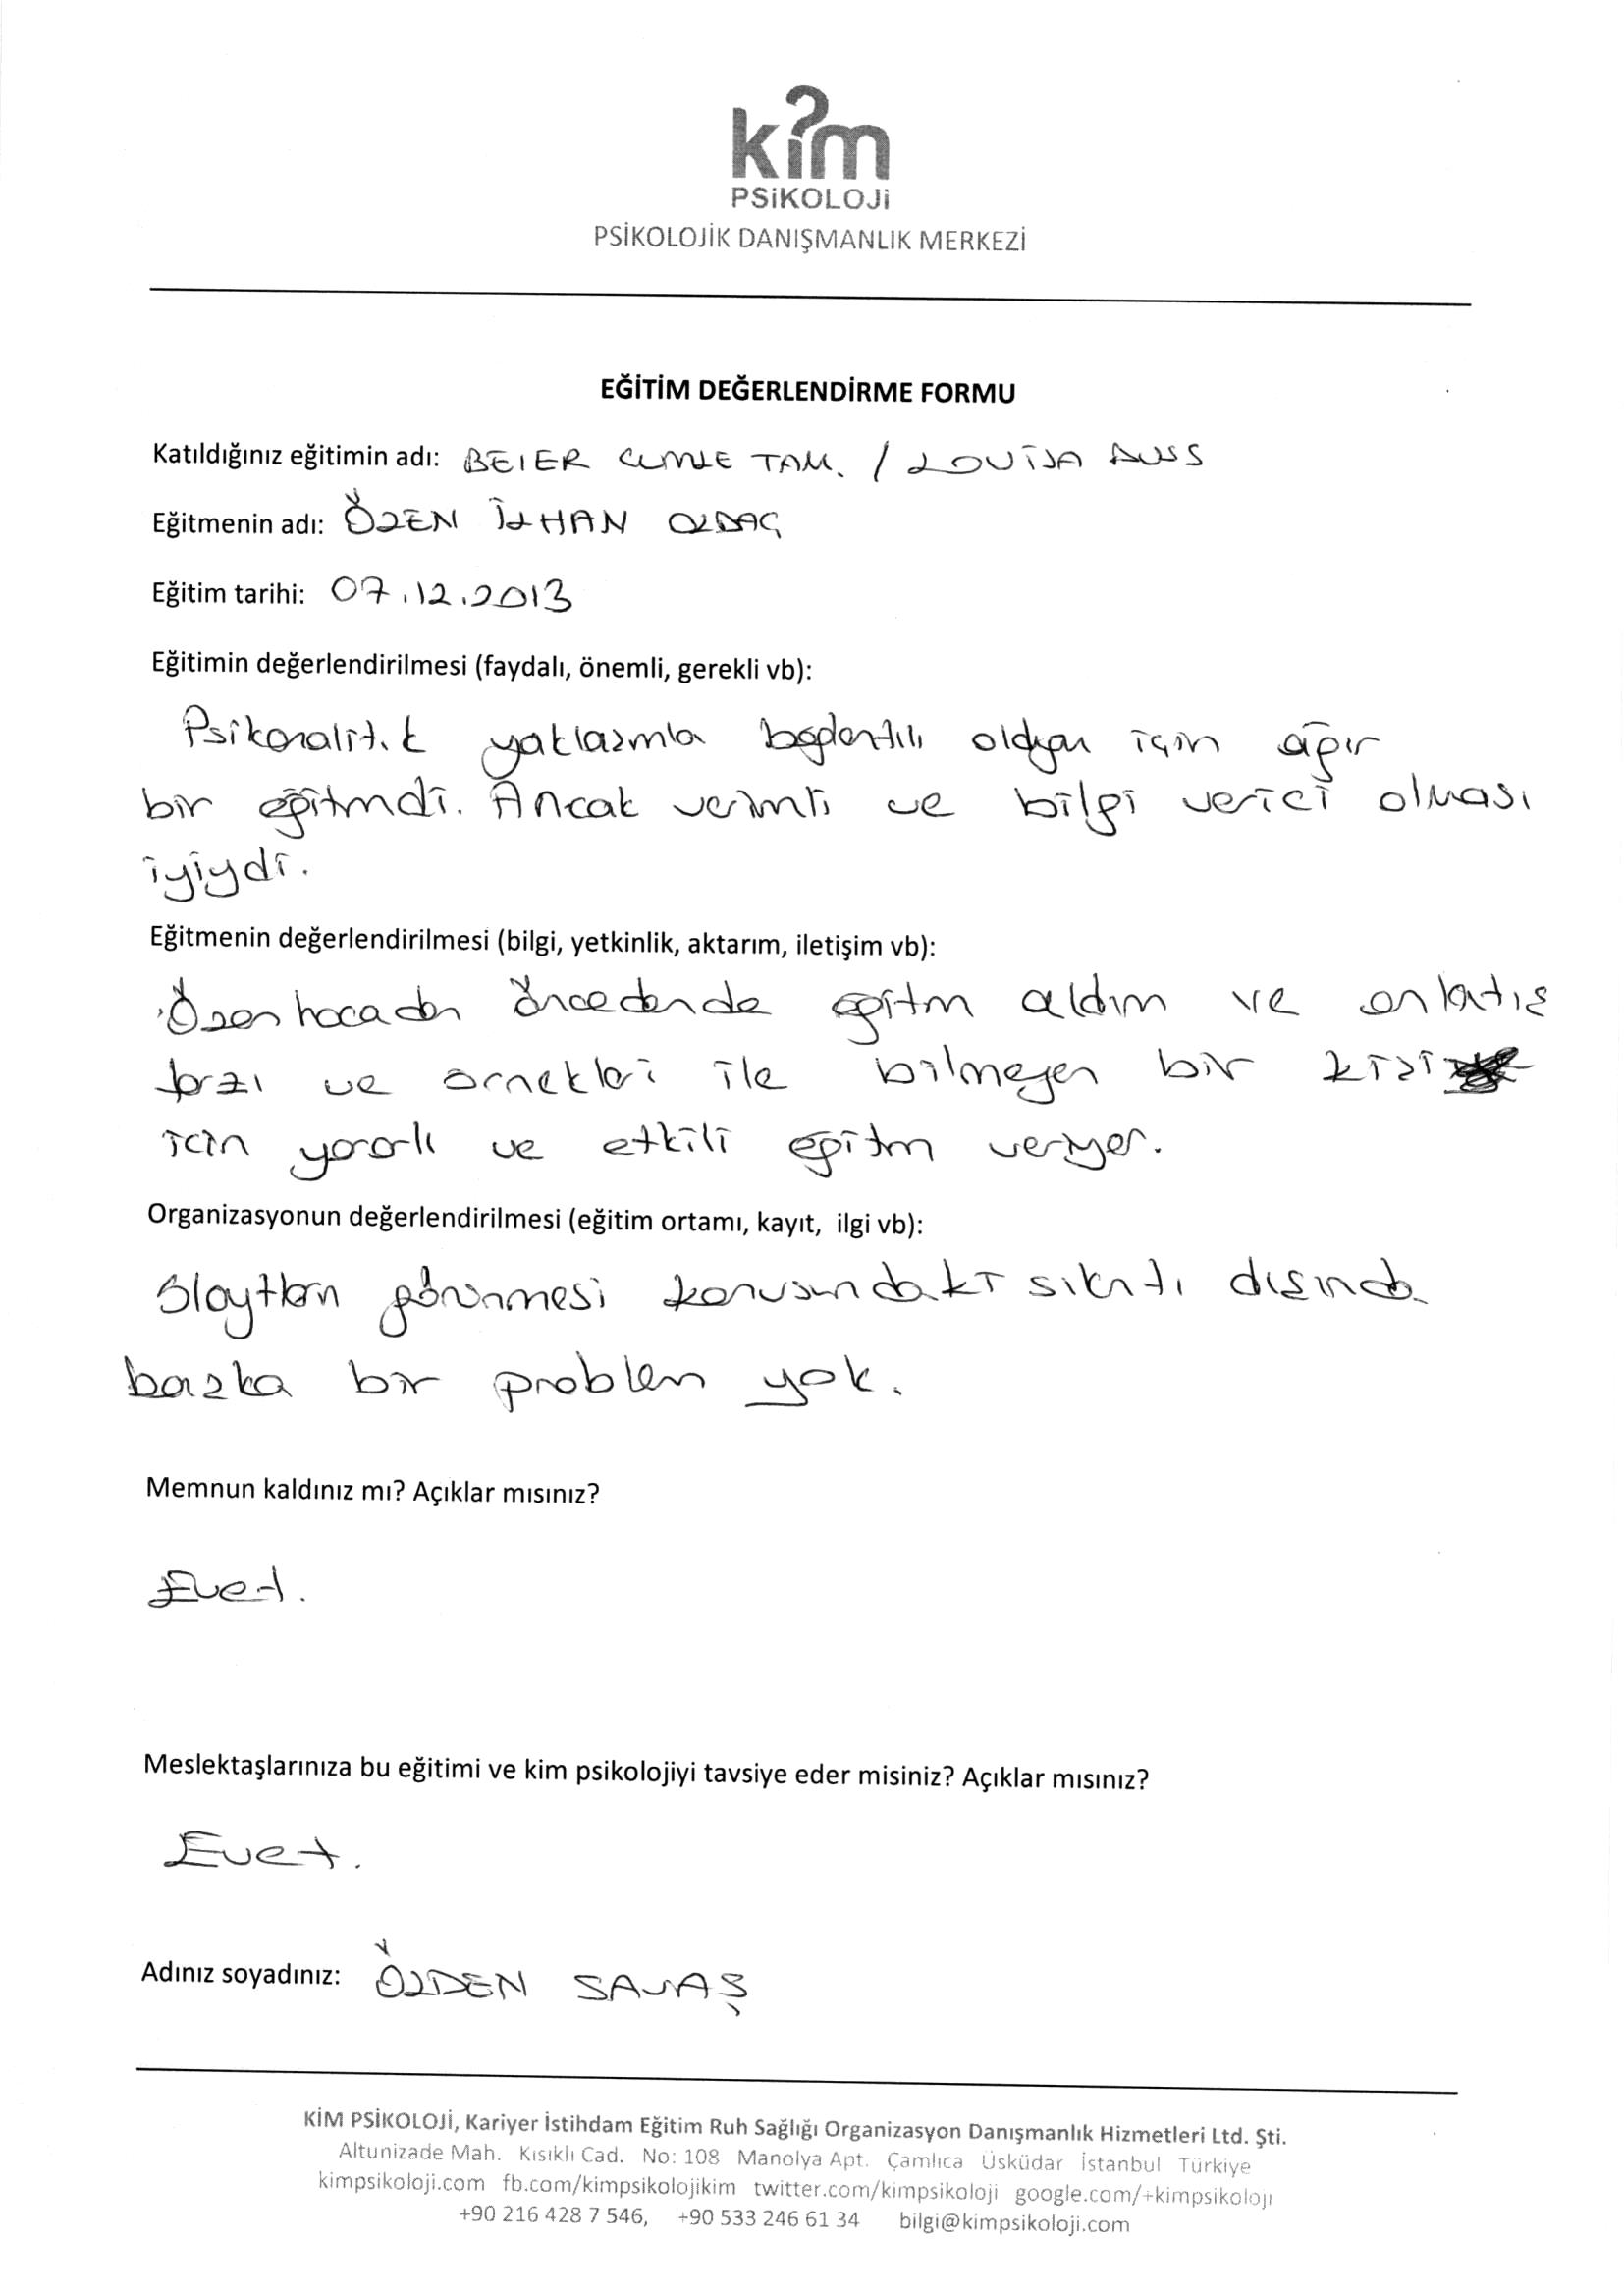 kim
PSiKOLOJi
PSİKOLOJİK DANIŞMANLIK MERKEZİ
EĞİTİM DEĞERLENDİRME FORMU
Katıldığınız eğitimin adı: BEIER CÜMLE TAM. / LOUİSA DUSS
Eğitmenin adı: ÖZEN İLHAN OLDAÇ
Eğitim tarihi: 07.12.2013
Eğitimin değerlendirilmesi (faydalı, önemli, gerekli vb):
Psikanalitik yaklaşımla bağlantılı olduğu için ağır
bir eğitimdi. Ancak verimli ve bilgi verici olması
iyiydi.
Eğitmenin değerlendirilmesi (bilgi, yetkinlik, aktarım, iletişim vb):
Özen hocadan öncedende eğitim aldım ve anlatış
tarzı ve örnekleri ile bilmeyen bir kişi
için yararlı ve etkili eğitim veriyor.
Organizasyonun değerlendirilmesi (eğitim ortamı, kayıt, ilgi vb):
Slaytların görünmesi konusundaki sıkıntı dışında
başka bir problem yok.
Memnun kaldınız mı? Açıklar mısınız?
Evet.
Meslektaşlarınıza bu eğitimi ve kim psikolojiyi tavsiye eder misiniz? Açıklar mısınız?
Evet.
Adınız soyadınız: ÖZDEN SAVAŞ
KİM PSİKOLOJİ, Kariyer İstihdam Eğitim Ruh Sağlığı Organizasyon Danışmanlık Hizmetleri Ltd. Şti.
Altunizade Mah. Kısıklı Cad. No: 108 Manolya Apt. Çamlıca Üsküdar İstanbul Türkiye
kimpsikoloji.com fb.com/kimpsikolojikim twitter.com/kimpsikoloji google.com/+kimpsikoloji
+90 216 428 7 546, +90 533 246 61 34 bilgi@kimpsikoloji.com